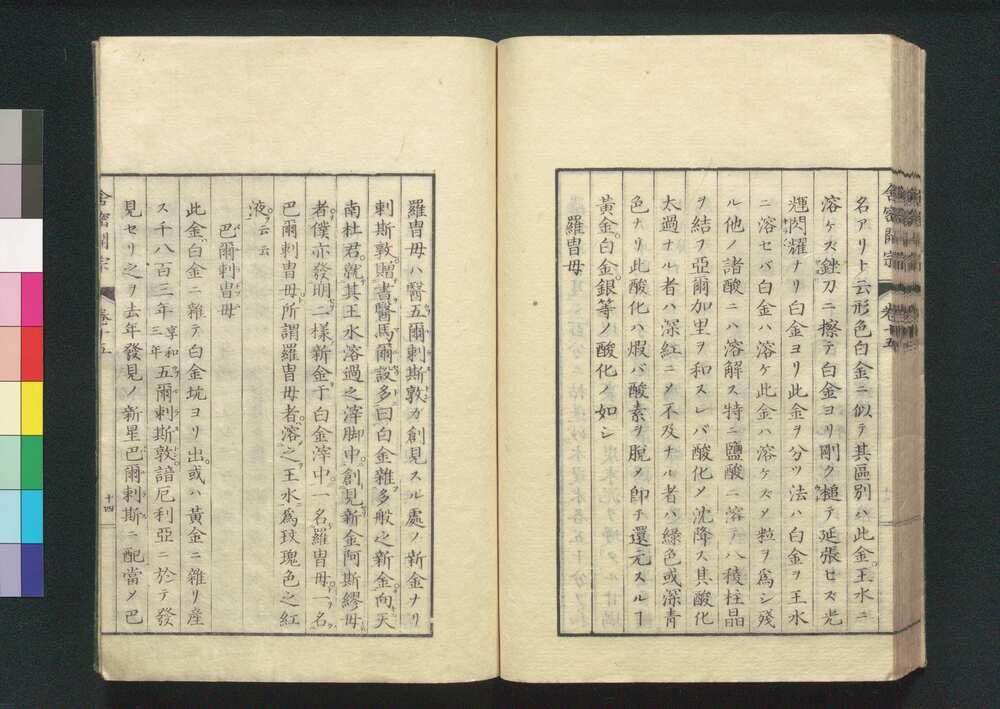 名アリト云形色白金ニ似テ其區別ハ此金王水ニ
溶ケズ銼刀ニ擦テ白金ヨリ剛ク槌テ延張セズ光
輝閃耀ナリ白金ヨリ此金ヲ分ツ法ハ白金ヲ王水
ニ溶セバ白金ハ溶ケ此金ハ溶ケズメ粒ヲ爲シ殘
ル他ノ諸酸ニハ溶解ス特ニ鹽酸ニ溶テ八稜柱晶
ヲ結フ亞爾加里ヲ和スレバ酸化メ沈降ス其酸化
太過ナル者ハ深紅ニメ不及ナル者ハ綠色或深青
色ナリ此酸化ハ煆バ酸素ヲ脫メ卽チ還元スルヿ
黃金白金銀等ノ酸化ノ如シ
羅冑母
舍密開宗
卷十五
羅冑母ハ醫五爾剌斯敦ガ創見スル處ノ新金ナリ
剌斯敦贈書醫馬爾設多曰白金雜多般之新金向天
南杜君就其王水溶過之滓脚中創見新金阿斯繆母
者僕亦發明二樣新金于白金滓中一名羅冑母一名
巴爾剌冑母所謂羅冑母者溶之王水爲玫瑰色之紅
液云云
巴爾剌冑母
此金白金ニ雜テ白金坑ヨリ出或ハ黃金ニ雜リ產
ス千八百三年享和三年五爾剌斯敦諳厄利亞ニ於テ發
見セリ之ヲ去年發見ノ新星巴爾剌斯ニ配當メ巴
舍密開宗
卷十五
十四